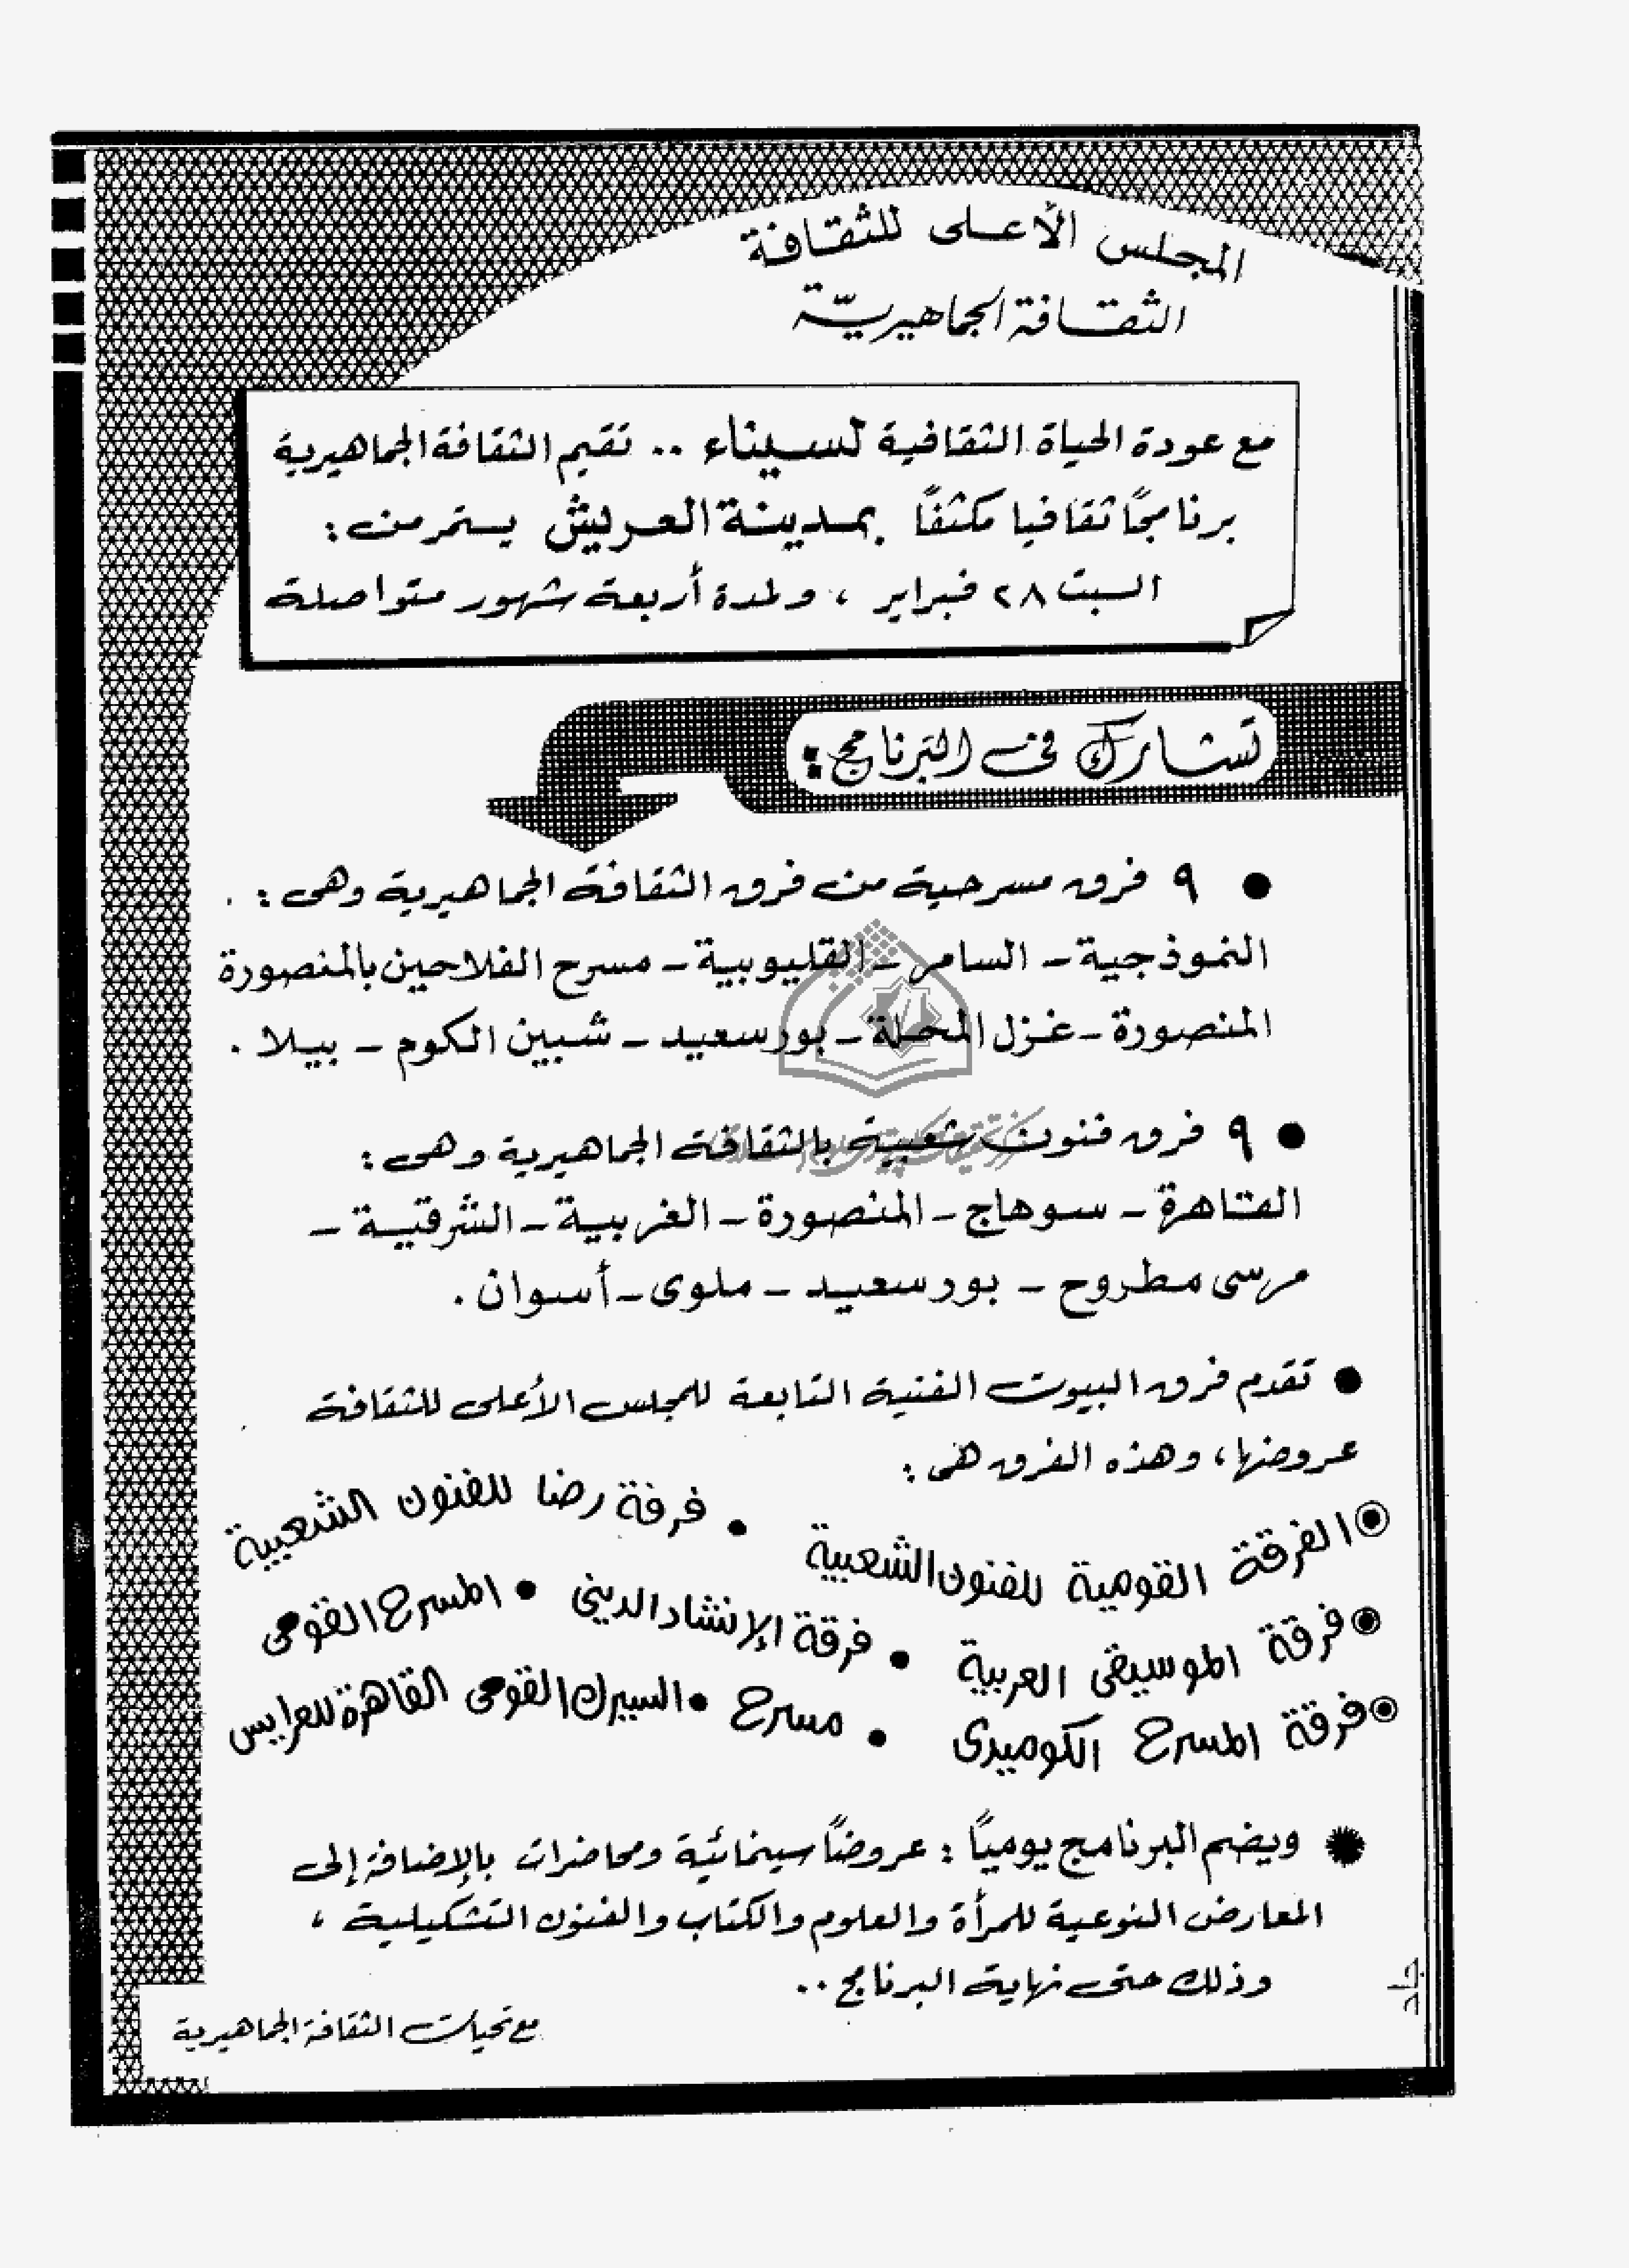 المجلس الأعلى للثقافة
الثقافة الجماهيريّة
مع عودة الحياة الثقافية لسيناء .. تقيم الثقافة الجماهيرية
برنامجًا ثقافيا مكثفًا بمدينة العريش يستمر من :
السبت ٢٨ فبراير ، ولمدة أربعة شهور متواصلة
تشارك فى البرنامج :
● ٩ فرق مسرحية من فرق الثقافة الجماهيرية وهى :
النموذجية - السامر - القليوبية - مسرح الفلاحين بالمنصورة
المنصورة - غزل المحلة - بورسعيد - شبين الكوم - بيلا .
● ٩ فرق فنون شعبية بالثقافة الجماهيرية وهى :
القاهرة - سوهاج - المنصورة - الغربية - الشرقية -
مرسى مطروح - بورسعيد - ملوى - أسوان .
● تقدم فرق البيوت الفنية التابعة للمجلس الأعلى للثقافة
عروضها ، وهذه الفرق هى :
◉ الفرقة القومية للفنون الشعبية • فرقة رضا للفنون الشعبية
◉ فرقة الموسيقى العربية • فرقة الإنشاد الدينى • المسرح القومى
◉ فرقة المسرح الكوميدى • مسرح • السيرك القومى القاهرة للعرايس
✹ ويضم البرنامج يوميًا : عروضًا سينمائية ومحاضرات بالإضافة إلى
المعارض النوعية للمرأة والعلوم والكتاب والفنون التشكيلية ،
وذلك حتى نهاية البرنامج ..
مع تحيات الثقافة الجماهيرية